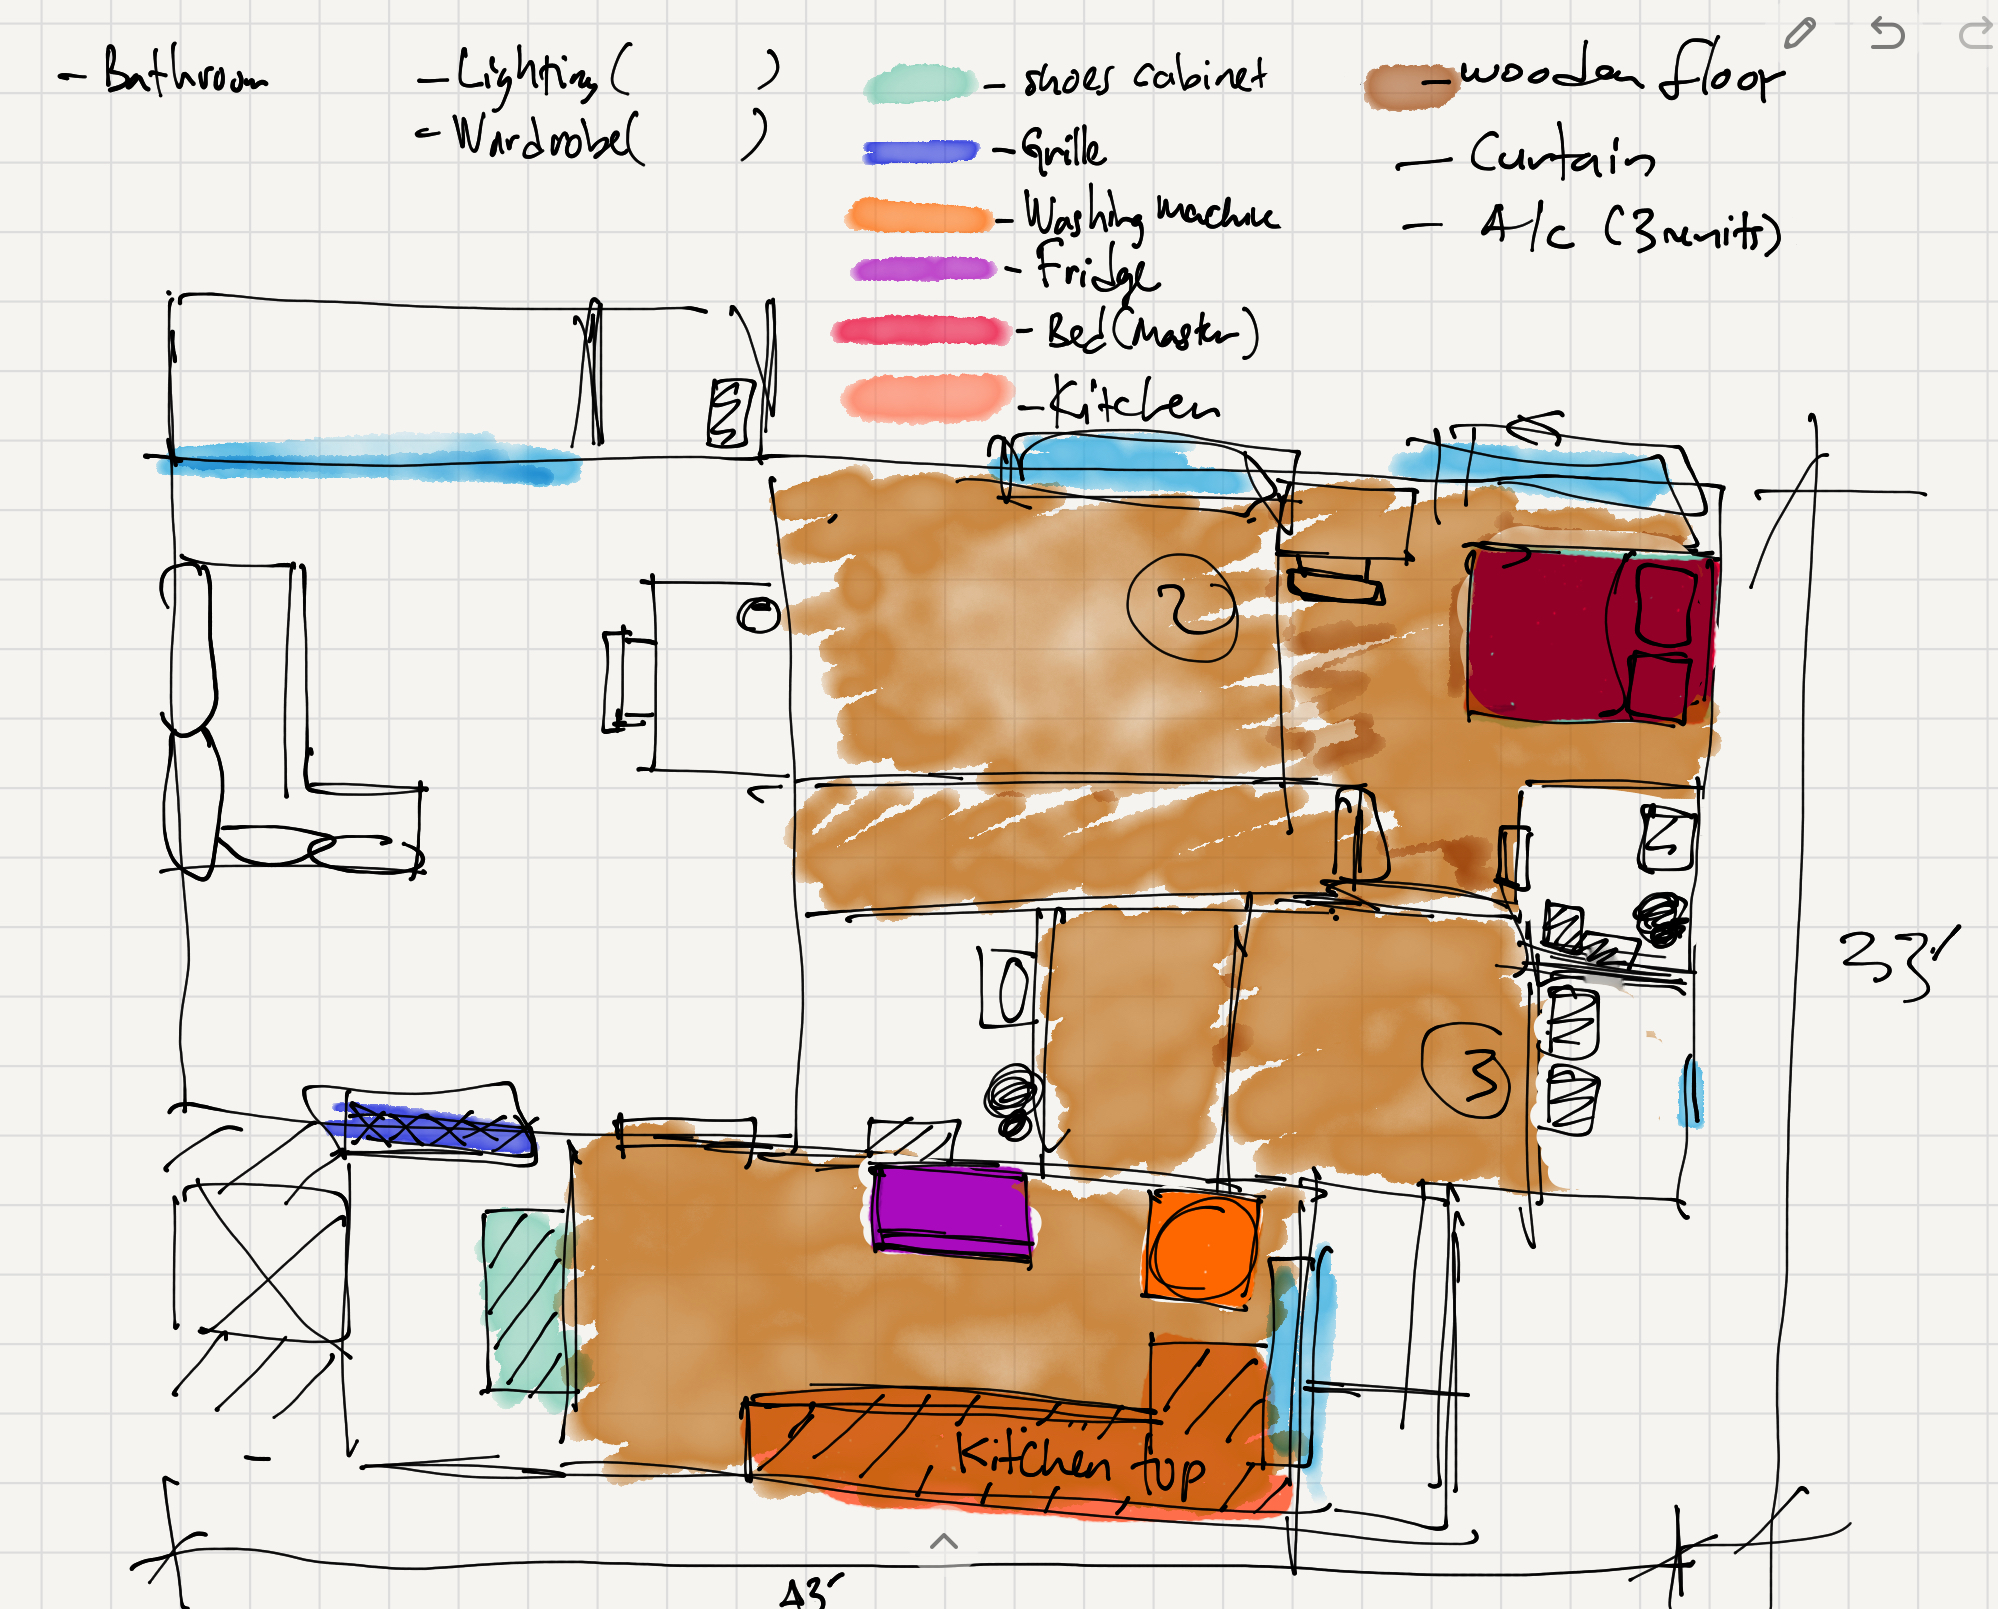 - Bathroom
- Lighting( )
- Wardrobe( )
- shoes cabinet
- Grille
- Washing machine
- Fridge
- Bed(Master)
- Kitchen
- wooden floor
- Curtain
- A/c (3 units)
2
3
33'
Kitchen top
43'